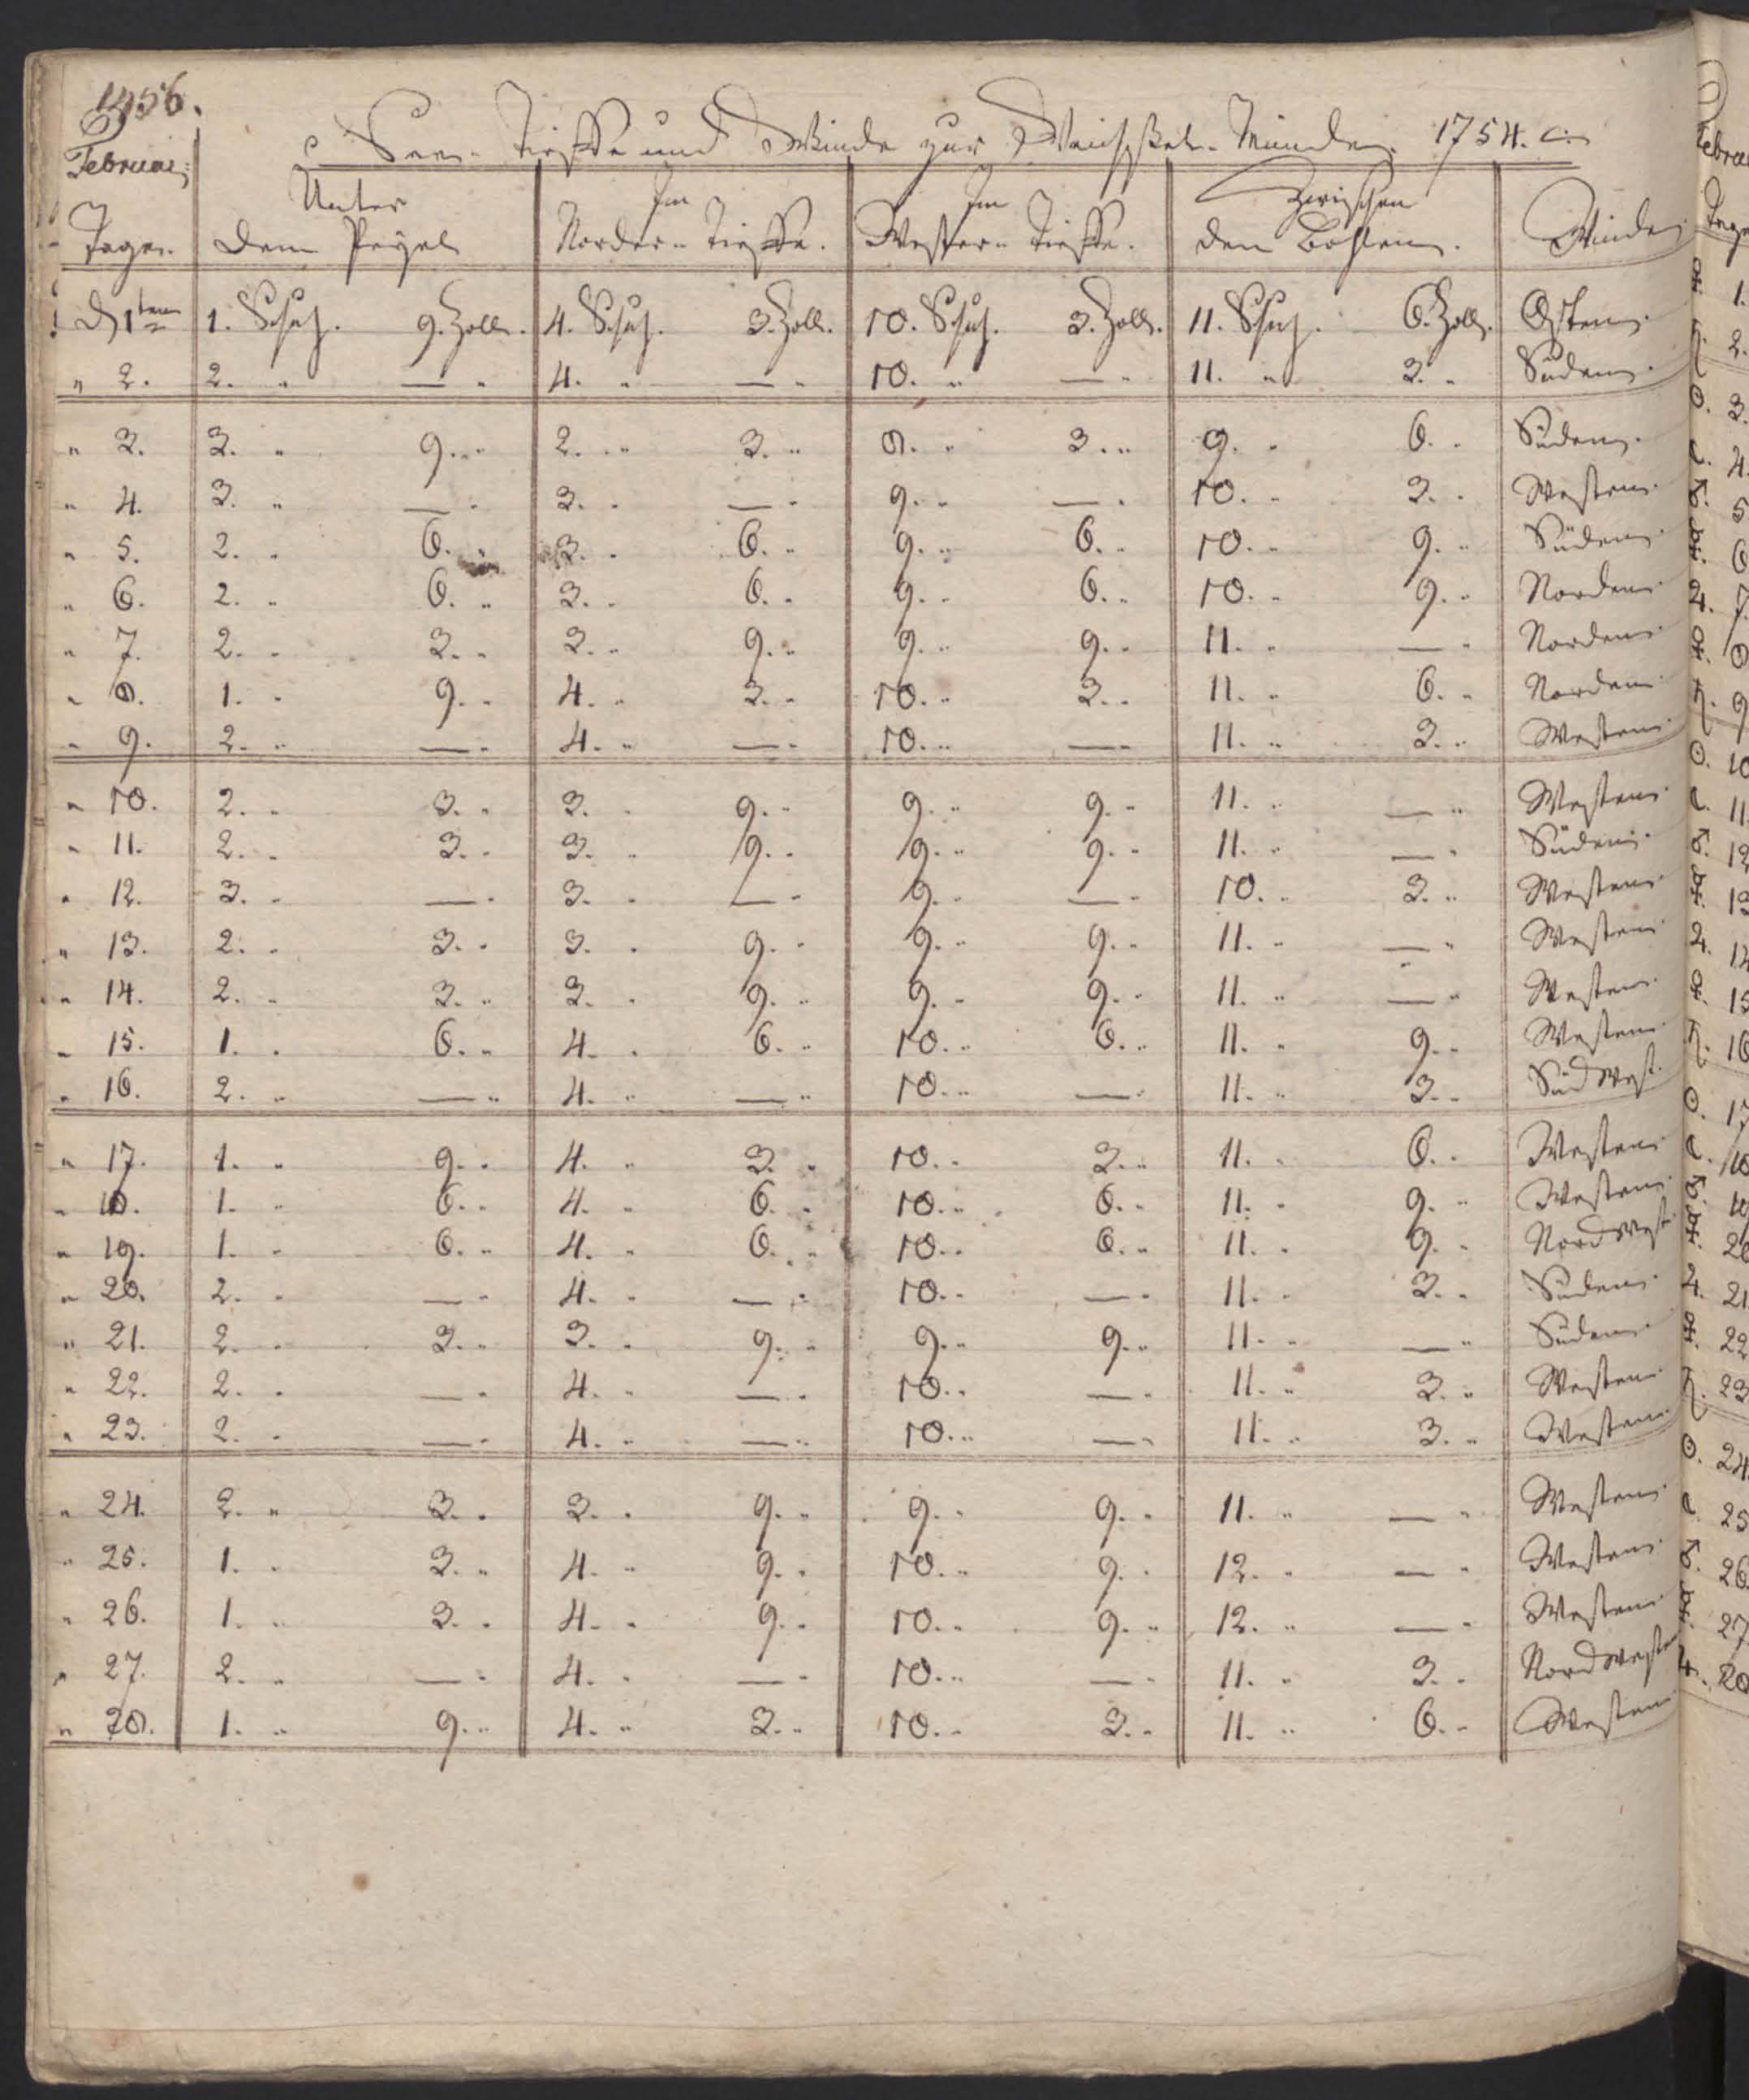 1456.
Februar:
See- Tieffe und Winde zur Weichssel- Münde. 1754.
Tage. Unter dem Pegel Im Norder- Tieffe. Im Wester- Tieffe. Zwischen den Bohlen. Winde.
D 1ten 1. Schuh. 9. Zoll. 4. Schuh. 3. Zoll. 10. Schuh. 3. Zoll. 11. Schuh. 6. Zoll. Osten.
" 2. 2. " — " 4. " — " 10. " — " 11. " 3. " Süden.
" 3. 3. " 9. " 2. " 3. " 8. " 3. " 9. " 6. " Süden.
" 4. 3. " — " 3. " — " 9. " — " 10. " 3. " Westen.
" 5. 2. " 6. " 3. " 6. " 9. " 6. " 10. " 9. " Süden.
" 6. 2. " 6. " 3. " 6. " 9. " 6. " 10. " 9. " Norden.
" 7. 2. " 3. " 3. " 9. " 9. " 9. " 11. " — " Norden.
" 8. 1. " 9. " 4. " 3. " 10. " 3. " 11. " 6. " Norden.
" 9. 2. " — " 4. " — " 10. " — " 11. " 3. " Westen.
" 10. 2. " 3. " 3. " 9. " 9. " 9. " 11. " — " Westen.
" 11. 2. " 3. " 3. " 9. " 9. " 9. " 11. " — " Süden.
" 12. 3. " — " 3. " — " 9. " — " 10. " 3. " Westen.
" 13. 2. " 3. " 3. " 9. " 9. " 9. " 11. " — " Westen.
" 14. 2. " 3. " 3. " 9. " 9. " 9. " 11. " — " Westen.
" 15. 1. " 6. " 4. " 6. " 10. " 6. " 11. " 9. " Westen.
" 16. 2. " — " 4. " — " 10. " — " 11. " 3. " Südwest.
" 17. 1. " 9. " 4. " 3. " 10. " 3. " 11. " 6. " Westen.
" 18. 1. " 6. " 4. " 6. " 10. " 6. " 11. " 9. " Westen.
" 19. 1. " 6. " 4. " 6. " 10. " 6. " 11. " 9. " Nordwest.
" 20. 2. " — " 4. " — " 10. " — " 11. " 3. " Süden.
" 21. 2. " 3. " 3. " 9. " 9. " 9. " 11. " — " Süden.
" 22. 2. " — " 4. " — " 10. " — " 11. " 3. " Westen.
" 23. 2. " — " 4. " — " 10. " — " 11. " 3. " Westen.
" 24. 2. " 3. " 3. " 9. " 9. " 9. " 11. " — " Westen.
" 25. 1. " 3. " 4. " 9. " 10. " 9. " 12. " — " Westen.
" 26. 1. " 3. " 4. " 9. " 10. " 9. " 12. " — " Westen.
" 27. 2. " — " 4. " — " 10. " — " 11. " 3. " Nordwesten
" 28. 1. " 9. " 4. " 3. " 10. " 3. " 11. " 6. " Westen.